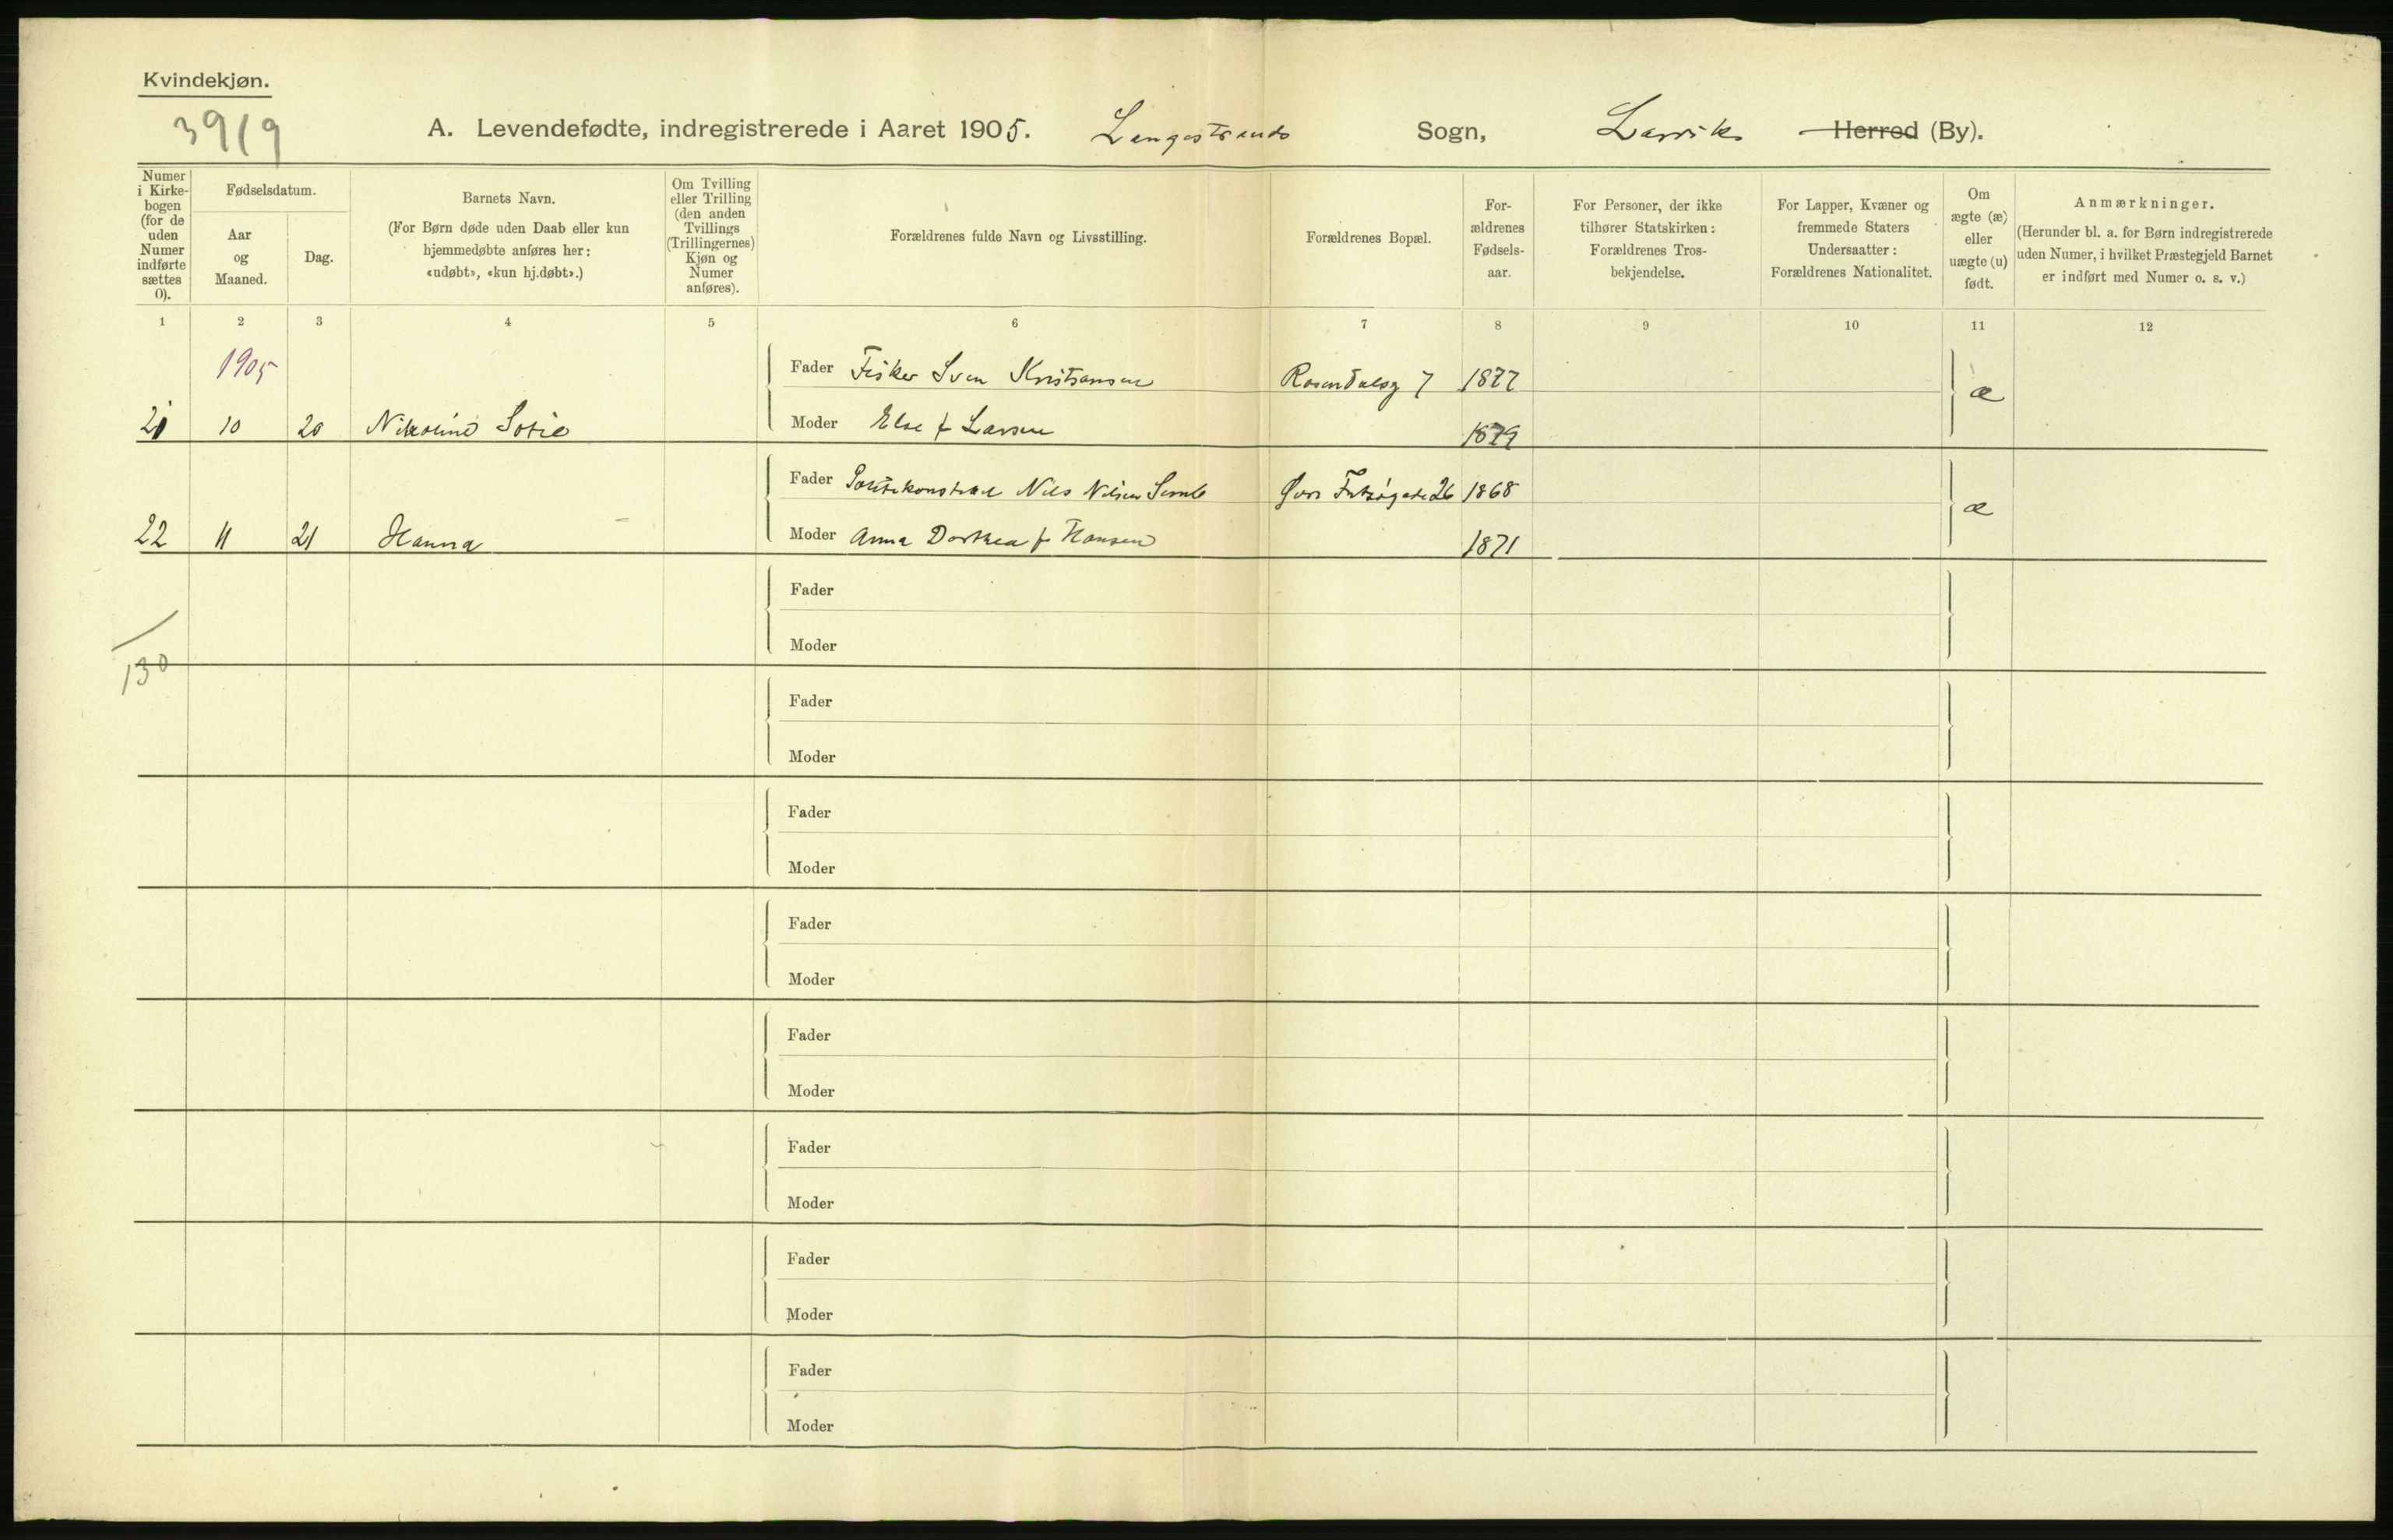 Kvindekjøn.
3919
A. Levendefødte, indregistrerede i Aaret 1905. Langestrands Sogn, Larviks Herred (By).
Numer i Kirkebogen (for de uden Numer indførte sættes 0).
Fødselsdatum.
Aar og Maaned.
Dag.
Barnets Navn.
(For Børn døde uden Daab eller kun hjemmedøbte anføres her: «udøbt», «kun hj.døbt».)
Om Tvilling eller Trilling (den anden Tvillings (Trillingernes) Kjøn og Numer anføres).
Forældrenes fulde Navn og Livsstilling.
Forældrenes Bopæl.
For-ældrenes Fødsels-aar.
For Personer, der ikke tilhører Statskirken: Forældrenes Tros-bekjendelse.
For Lapper, Kvæner og fremmede Staters Undersaatter: Forældrenes Nationalitet.
Om ægte (æ) eller uægte (u) født.
Anmærkninger.
(Herunder bl. a. for Børn indregistrerede uden Numer, i hvilket Præstegjeld Barnet er indført med Numer o. s. v.)
1 2 3 4 5 6 7 8 9 10 11 12
1905
Fader Fisker Sven Kristiansen Rosendalsg 7 1877 æ
21 10 20 Nikoline Sofie Moder Else f Larsen 1879
Fader Nils Nilsen Øvre Fritzøgade 26 1868 æ
22 11 21 Hanna Moder Anna Dorthea f Hansen 1871
Fader
Moder
130
Fader
Moder
Fader
Moder
Fader
Moder
Fader
Moder
Fader
Moder
Fader
Moder
Fader
Moder